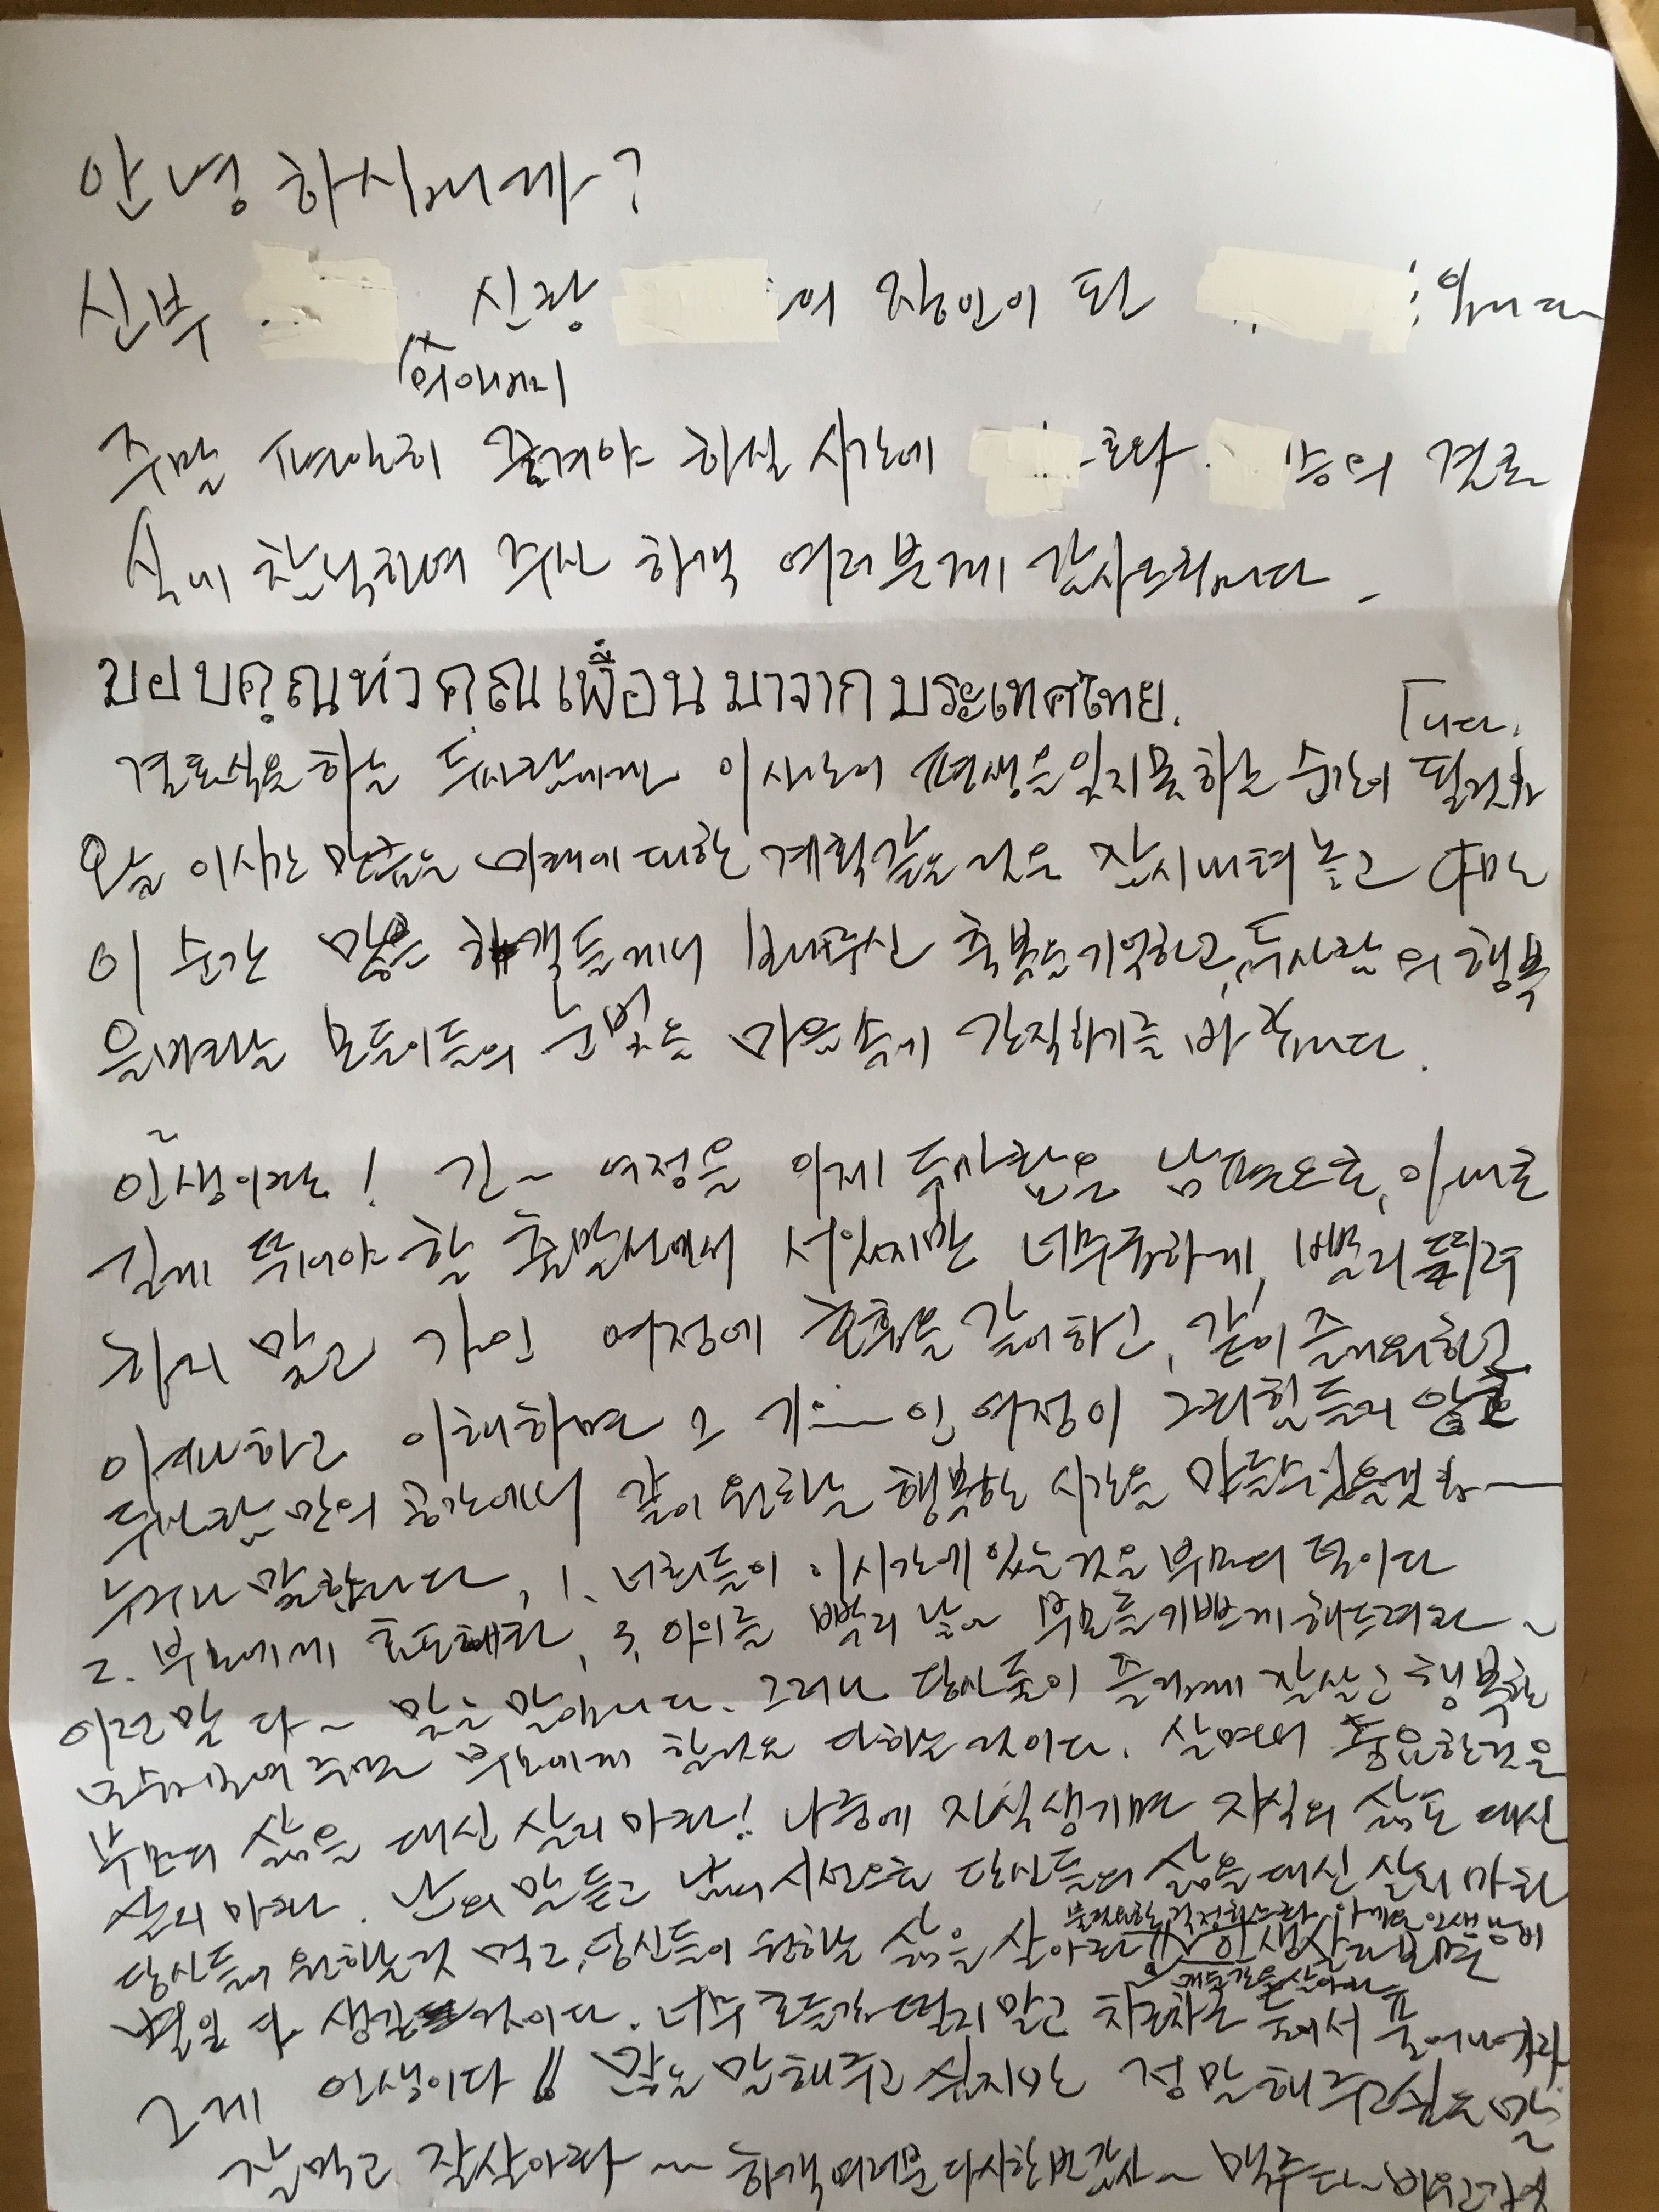 안녕하십니까?
신부 신랑 의 장인이 된 입니다
의 아버지
주말 편안히 즐겨야 하실 시간에 와 승의 결혼
식에 참석하여 주신 하객 여러분께 감사드립니다.
ขอบคุณทั่วคุณเพื่อนมาจากประเทศไทย.
결혼식을 하는 두사람에게 이시간이 평생을 잊지못하는 순간이 될것입
니다.
오늘 이시간 만큼은 미래에 대한 계획같은 것은 잠시 내려놓고
이 순간 많은 하객들께서 보내주신 축복을 기억하고, 두사람의 행복
을 바라는 모든이들의 눈빛을 마음속에 간직하기를 바랍니다.
인생이라는! 긴~ 여정을 이제 두사람은 남편으로, 아내로
길게 뛰어야 할 출발선에서 서있지만 너무 급하게, 빨리 뛰려
하지 말고 기인 여정에 호흡을 같이하고, 같이 즐거워하고
이해하고 이해하면 그 기으~인 여정이 그리 힘들지 않을
두사람만의 공간에서 같이 원하는 행복한 시간을 만들수있을것
누구나 말합니다, 1. 너희들이 이시간에 있는것은 부모의 덕이다
2. 부모에게 효도해라, 3. 아이를 빨리 낳아 부모를 기쁘게 해드려라~
이런말 다~ 맞는 말입니다. 그러나 당신들이 즐겁게 잘살고 행복한
모습 보여주면 부모에게 할것은 다하는 것이다. 살면서 중요한것은
부모의 삶을 대신 살지 마라! 나중에 자식생기면 자식의 삶도 대신
살지 마라. 남의 말 듣고 남의 시선으로 당신들의 삶을 대신 살지 마라
당신들이 원하는것 먹고, 당신들이 원하는 삶을 살아라!! 인생 살다보면
불필요한 걱정하느라 아까운 인생 낭비
별일 다 생길 것이다. 너무 호들갑 떨지 말고 차근차근 둘에서 풀어나가라
그게 인생이다!! 많은 말 해주고 싶지만 정말 해주고싶은 말
잘먹고 잘살아라~~ 하객여러분 다시한번 감사~